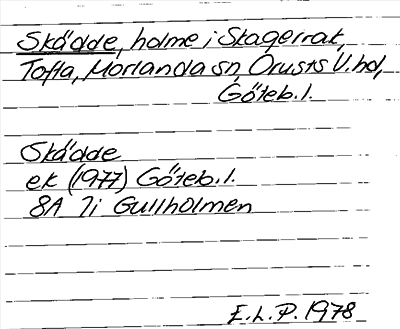 Skådde, holme i Skagerrak,
Tofta, Morlanda sn, Orusts V. hd,
Göteb. l.
Skådde
ek (1977) Göteb. l.
8A 7i Gullholmen
E.L.P. 1978